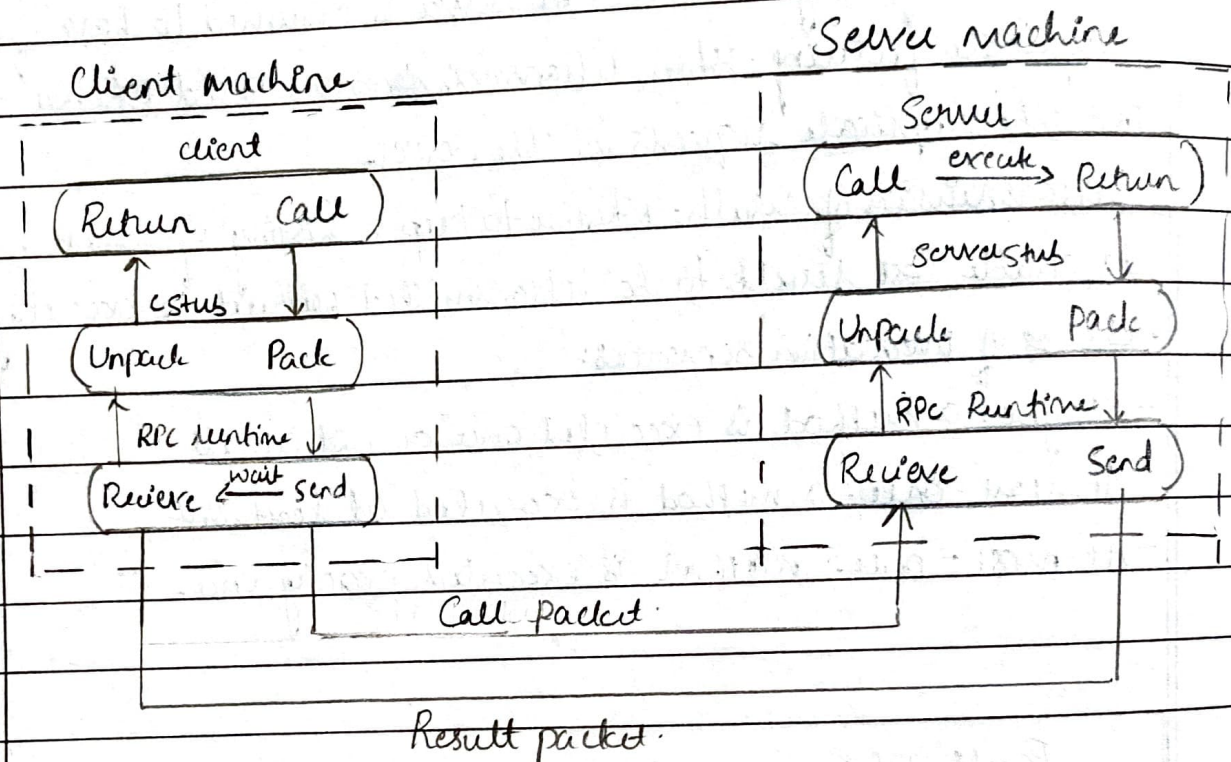 Client machine
client
Return Call
cstub
Unpack Pack
RPC runtime
Recieve wait send
Server machine
Server
Call execute Return
serverstub
Unpack pack
RPC Runtime
Recieve Send
Call packet.
Result packet.